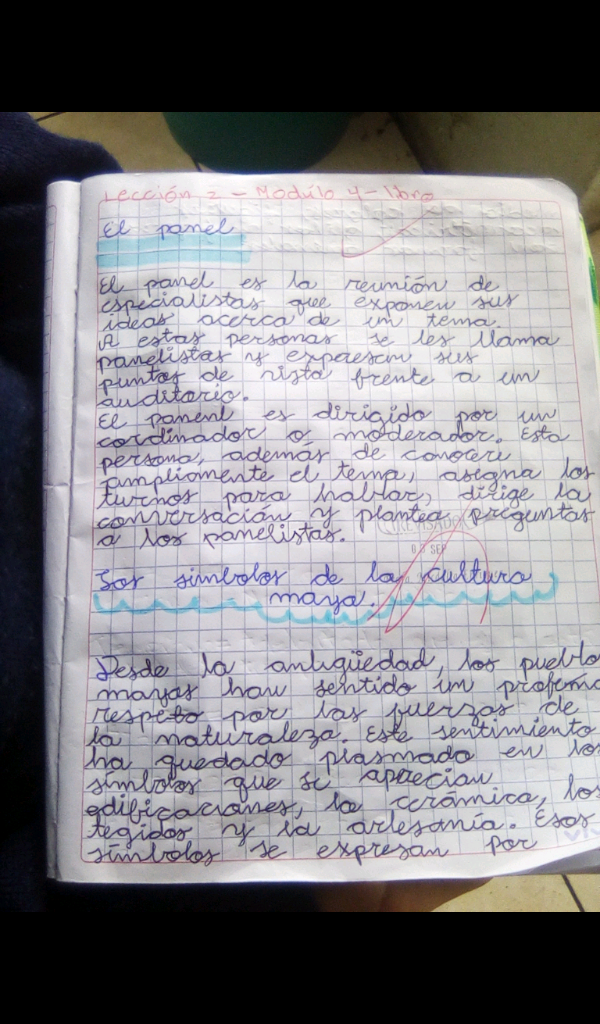 Lección 2 - Modúlo 4 - libro
El panel
El panel es la reunión de
especialistas que exponen sus
ideas acerca de un tema.
A estas personas se les llama
panelistas y expresan sus
puntos de vista frente a un
auditorio.
El panenl es dirigido por un
cordinador o moderador. Esta
persona, además de conocer
ampliamente el tema, asigna los
turnos para hablar, dirige la
conversación y plantea preguntas
a los panelistas.
REVISADO
05 SEP
Los símbolos de la cultura
maya.
Desde la antigüedad, los pueblo
mayas han sentido un profund
respeto por las fuerzas de
la naturaleza. Este sentimiento
ha quedado plasmado en los
símbolos que se aprecian
edificaciones, la cerámica, los
tegidos y la artesanía. Esos
símbolos se expresan por